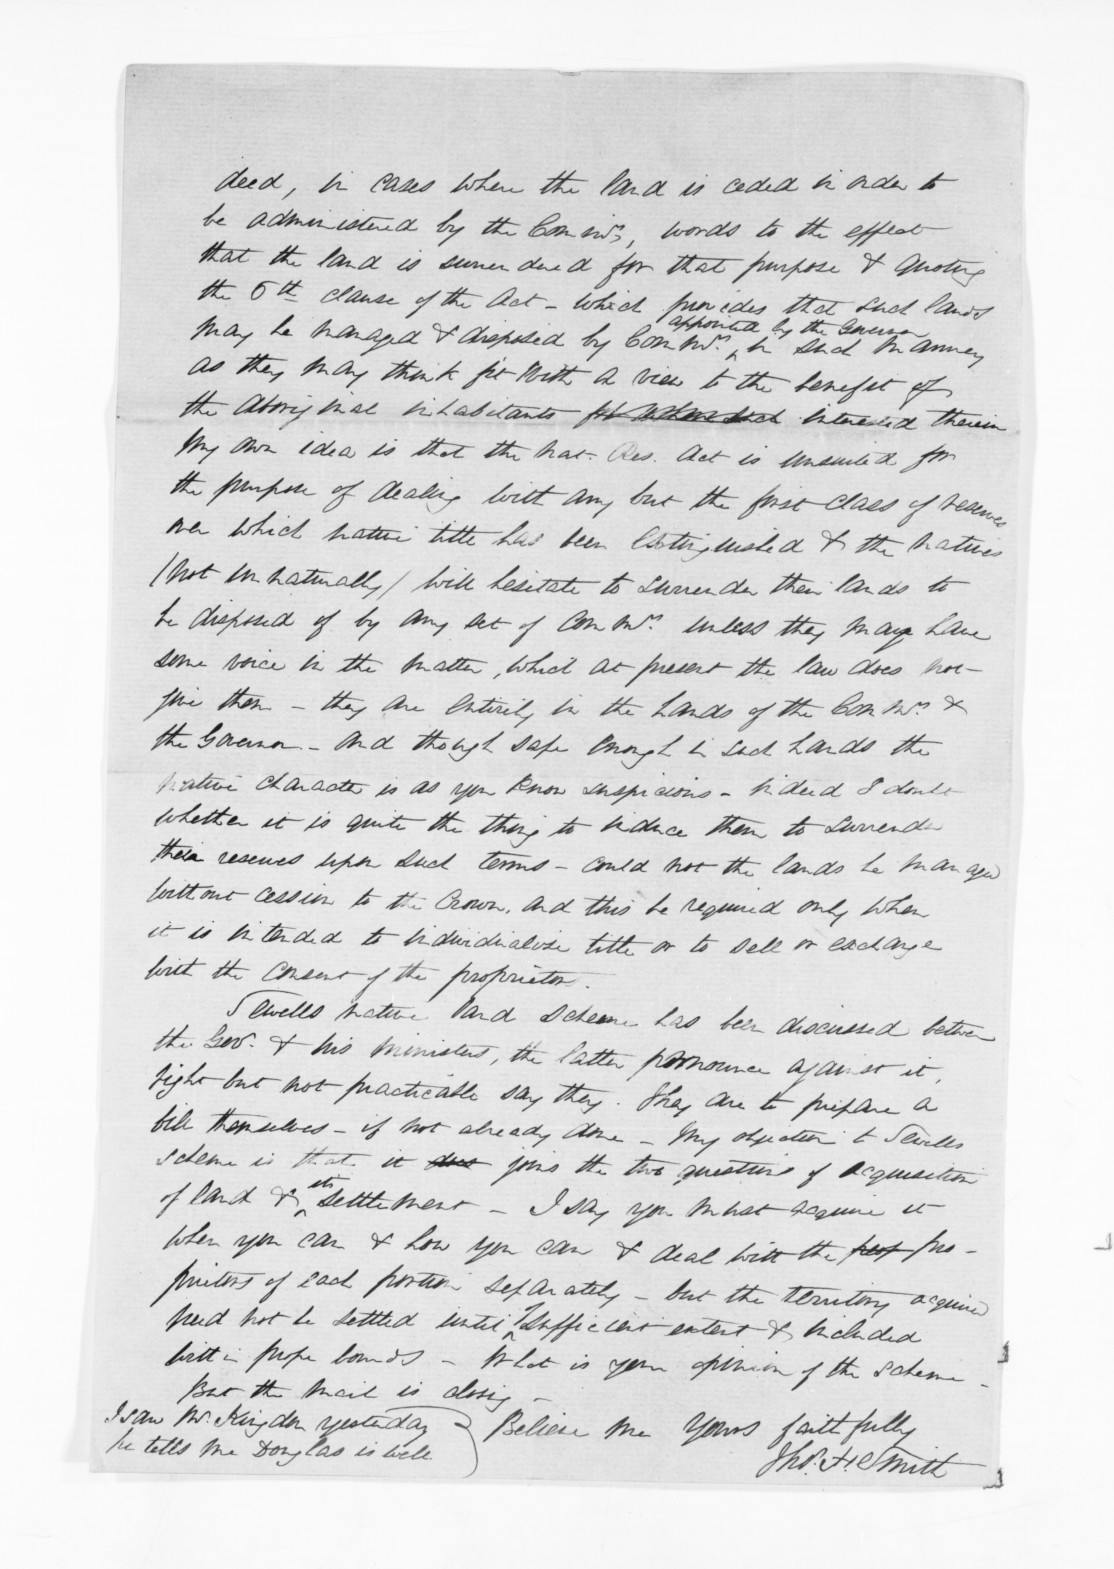 deed, in cases where the land is ceded in order to
be administered by the Commrs, words to the effect
that the land is surrendered for that purpose & quoting
the 6th clause of the Act - which provides that such lands
may be managed & disposed by Commrs appointed by the Governor in such manner
as they may think fit with a view to the benefit of
the Aboriginal inhabitants interested therein
My own idea is that the Nat. Res. Act is unsuited for
the purpose of dealing with any but the first class of reserves
over which native title has been extinguished & the natives
(not unnaturally) will hesitate to surrender their lands to
be disposed of by any set of Commrs unless they may have
some voice in the matter, which at present the law does not
give them - they are entirely in the hands of the Commrs &
the Governor - and though safe enough in such hands the
native character is as you know suspicious - indeed I doubt
whether it is quite the thing to induce them to surrender
their reserves upon such terms - could not the lands be managed
without cession to the Crown, and this be required only when
it is intended to individualise title or to sell or exchange
with the consent of the proprietors.
Sewells native land scheme has been discussed between
the Gov. & his ministers, the latter pronounce against it,
right but not practicable say they. They are to prepare a
bill themselves - if not already done - My objection to Sewells
scheme is that it does joins the two questions of acquisition
of land & its settlement - I say you must acquire it
when you can & how you can & deal with the prop pro-
prietors of each portion separately - but the territory acquired
need not be settled until of sufficient extent & included
within proper bounds - What is your opinion of the scheme -
But the mail is closing -
I saw Mr. Kingdon yesterday
he tells me Douglas is well
Believe me Yours faithfully
Thos. H. Smith